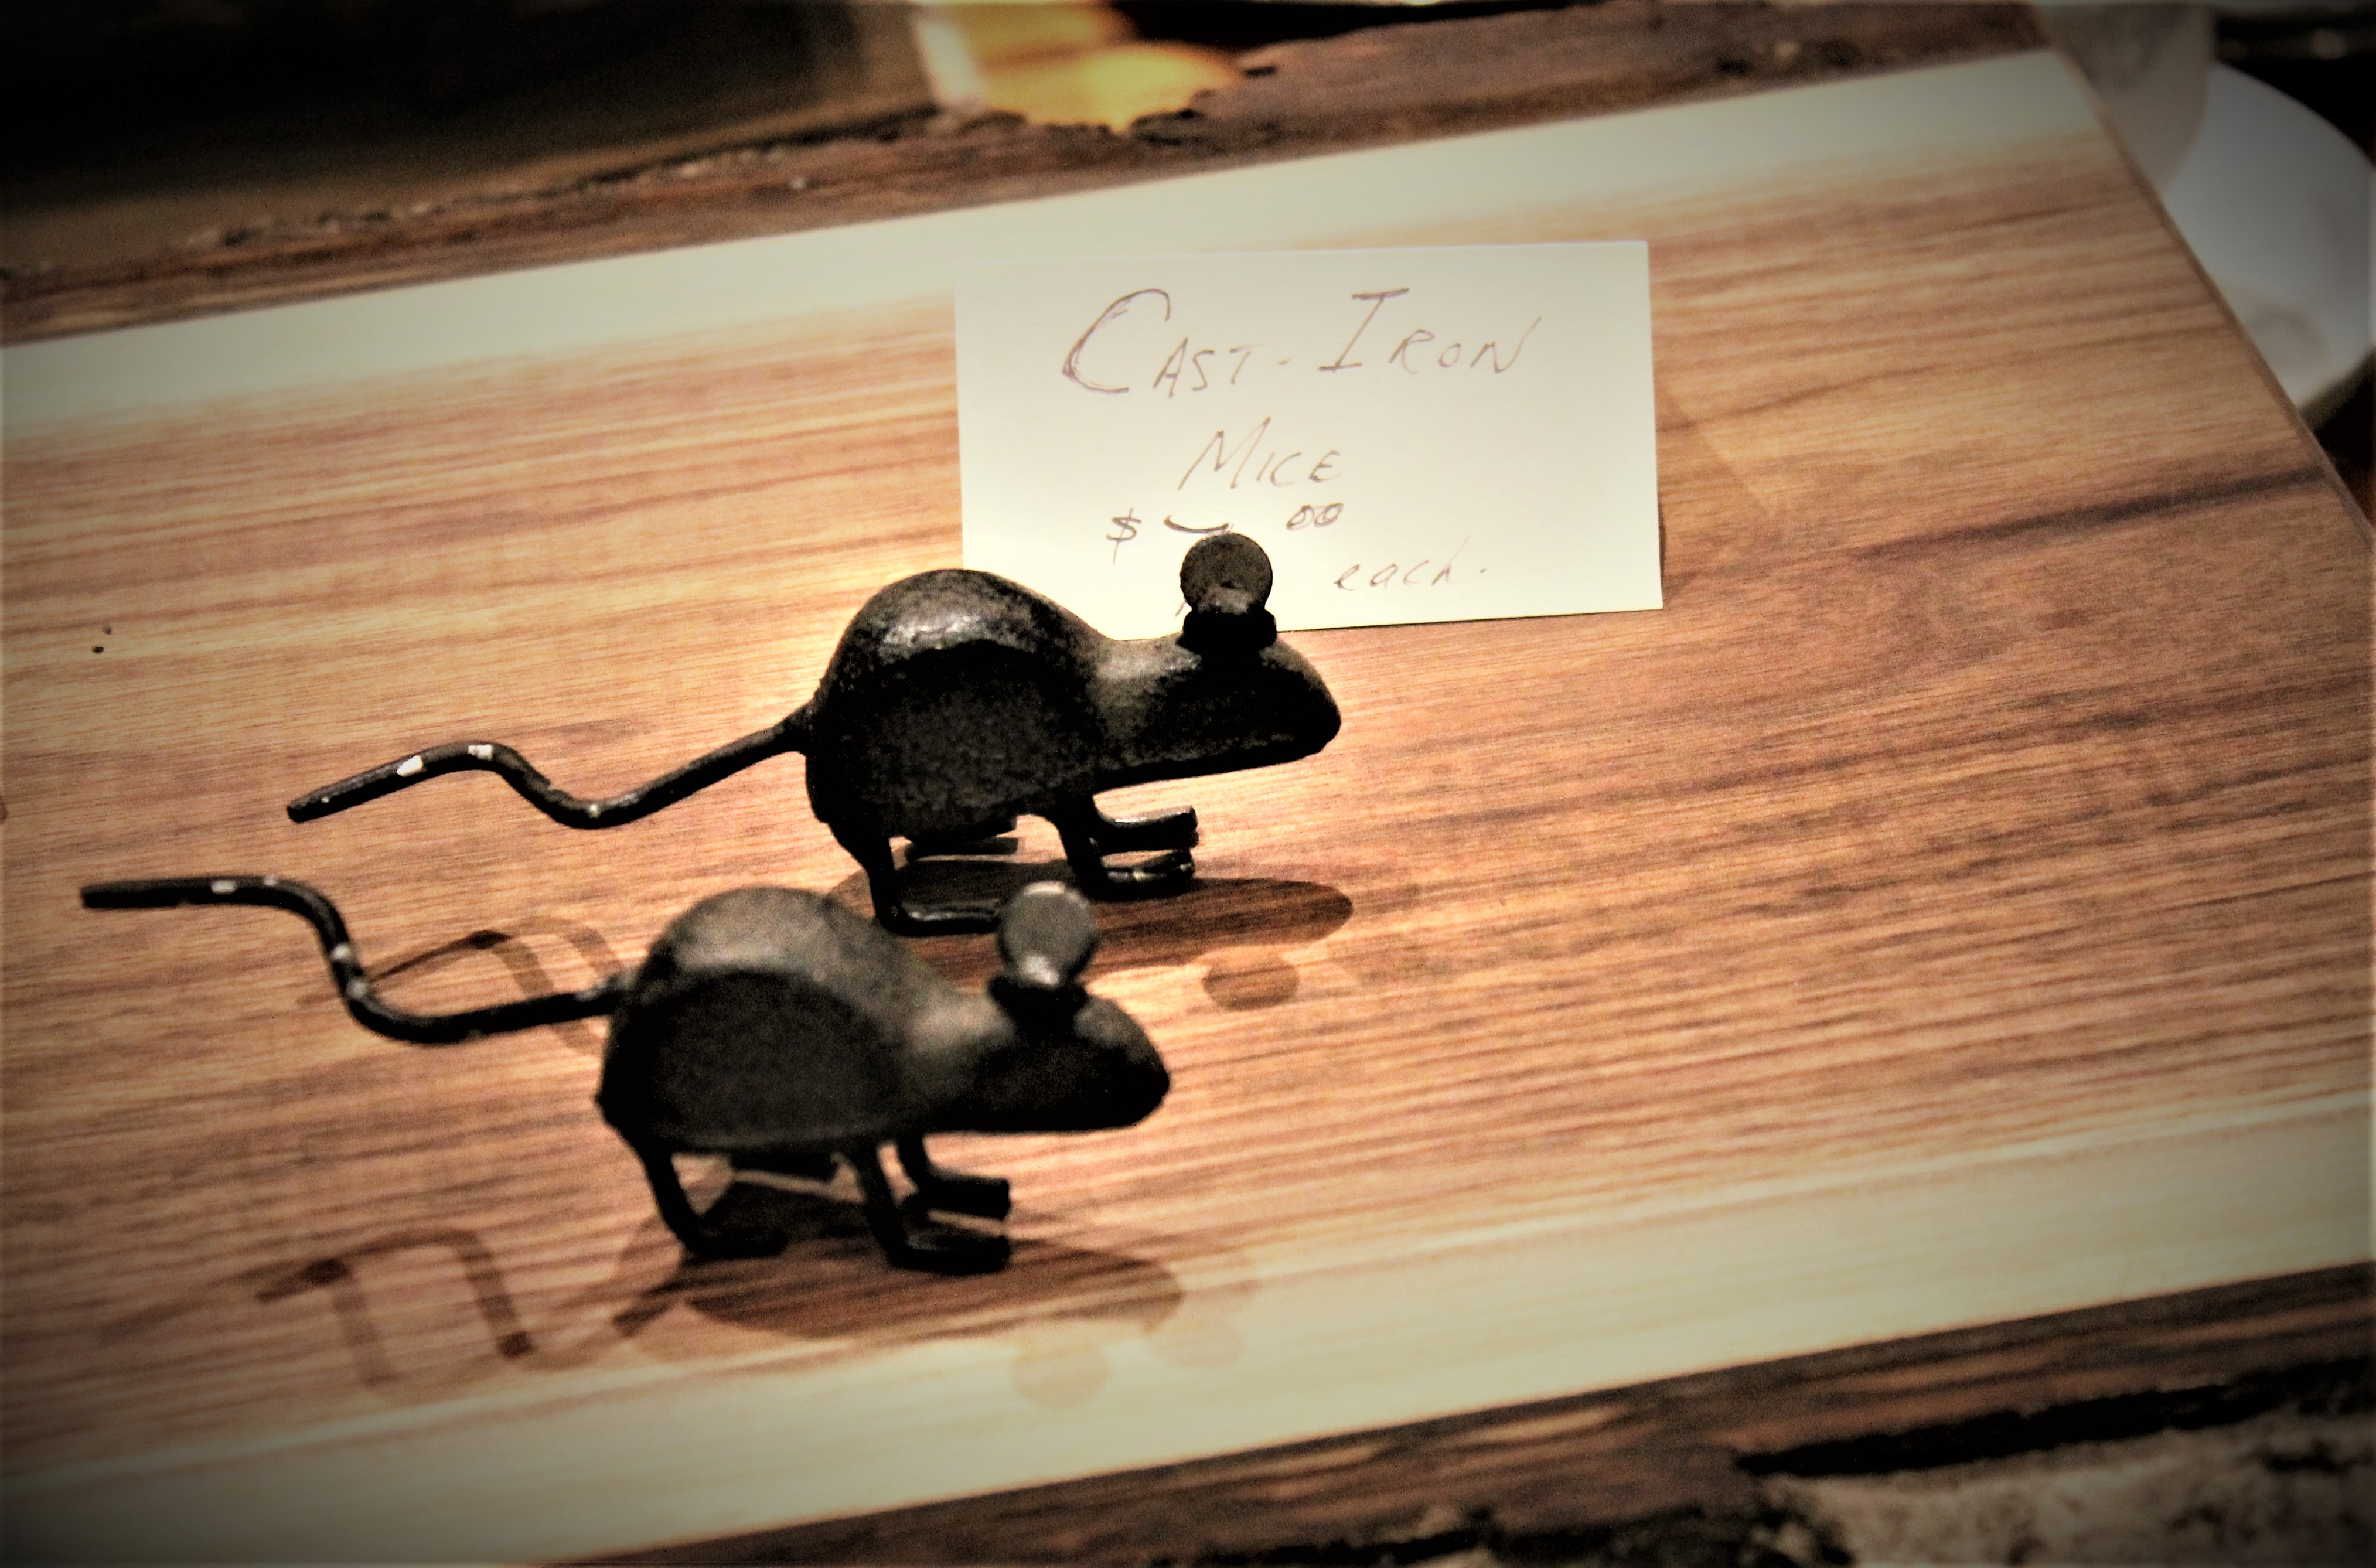 CAST-IRON
MICE
$ 00
each.